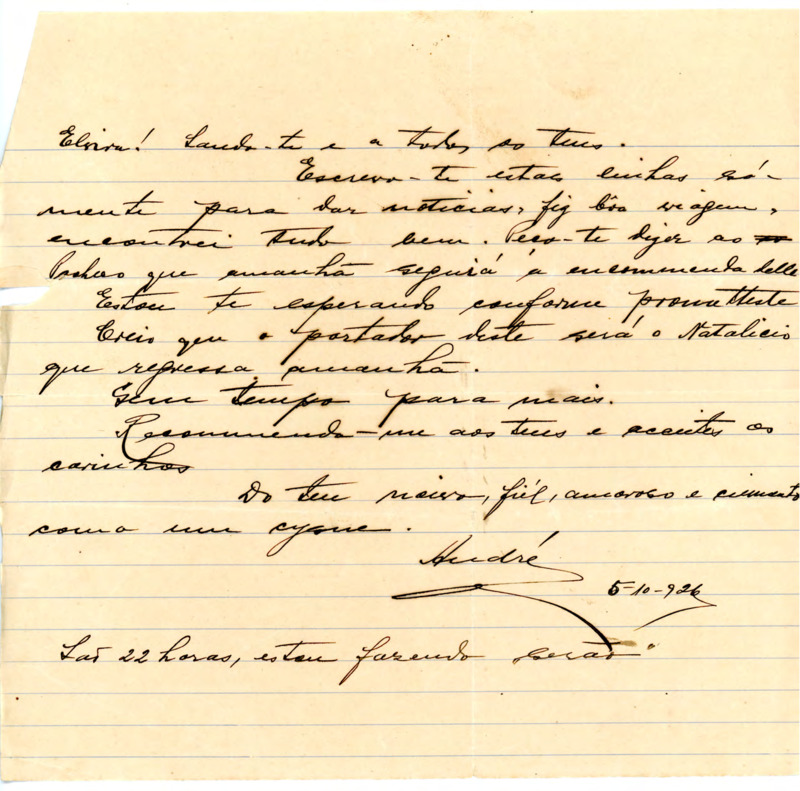 Elvira! Saudo-te e a todos os teus.
Escrevo-te estas linhas só-
mente para dar noticias, fiz bôa viagem,
encontrei tudo bem. Peço-te dizer ao
que amanhã seguirá á encommenda delle
Estou te esperando conforme prometteste
Creio que o portador deste será o Natalicio
que regressa amanhã.
Sem tempo para mais.
Recommenda-me aos teus e acceites os
carinhos
Do teu noivo, fiél, amoroso e ciumento
como um cysne.
André
5-10-926
São 22 horas, estou fazendo serão